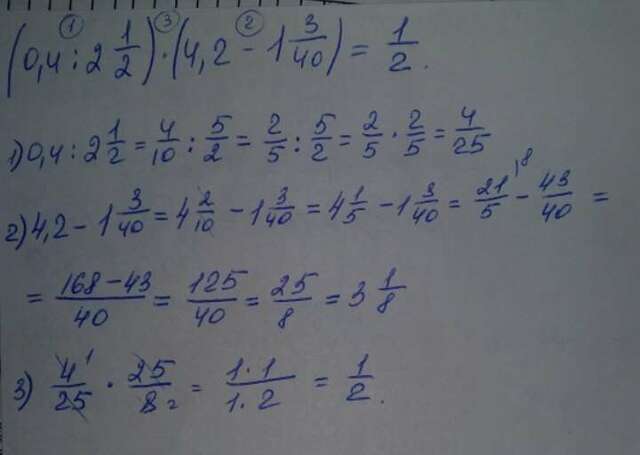 ① ③ ②
(0,4 : 2 1/2) · (4,2 − 1 3/40) = 1/2.
1) 0,4 : 2 1/2 = 4/10 : 5/2 = 2/5 : 5/2 = 2/5 · 2/5 = 4/25
2) 4,2 − 1 3/40 = 4 2/10 − 1 3/40 = 4 1/5 − 1 3/40 = 21/5 \8 − 43/40 =
= 168−43/40 = 125/40 = 25/8 = 3 1/8
3) 4 1/25 · 25/8 2 = 1·1/1·2 = 1/2.